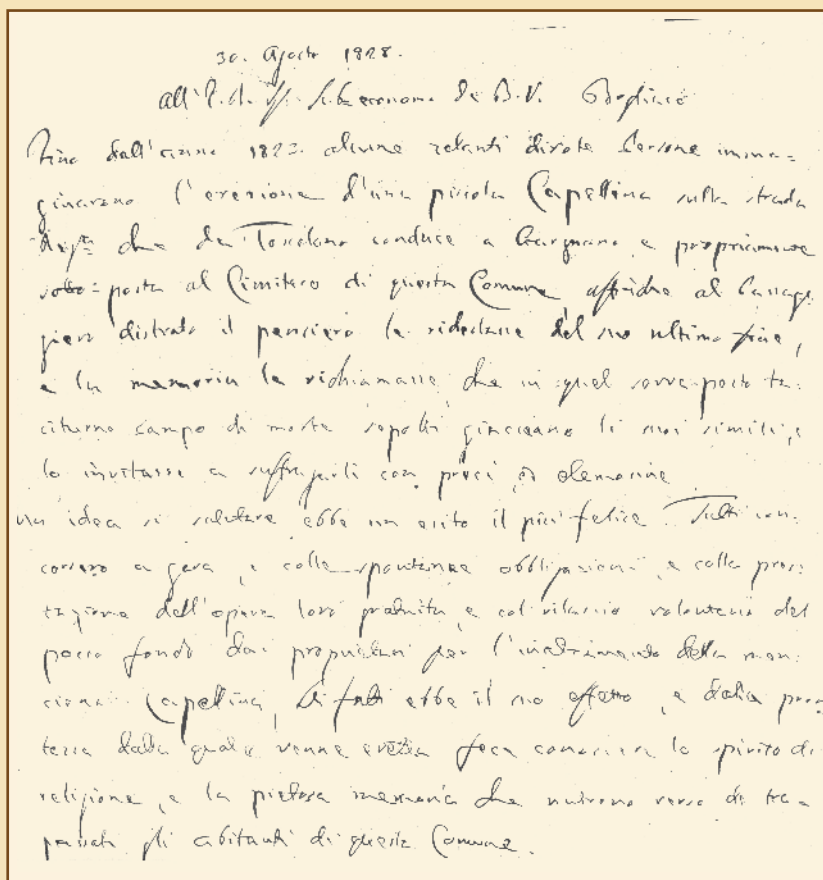 30. Agosto 1828.
all' Sub economo de B. V. Bogliaco
Fino dall'anno 1823. alcune zelanti divote Persone imma=
ginarono l'erezione d'una piccola Capellina sulla strada
che da Toscolano conduce a Gargnano e propriamente
sotto=posta al Cimitero di questa Comune affinche al Passag
giero distrato il penciero le ridestasse del suo ultimo fine,
e la memoria le richiamasse, che in quel sovra posto ta:
citurno campo di morte sepolti giacciono li suoi simili, e
lo invitasse a suffragarli con preci, od elemosine
un idea si salutare ebbe un esito il più felice. Tutti con:
corsero a gara, e colle spontanee obbligazioni, e colla pres:
tazione dell'opera loro gratuita, e col rilascio volontario del
poco fondo dai proprietari per l'inalzamento della men:
ciona Capellina, Di fatti ebbe il suo effetto, e dalla pron
tezza dalla quale venne eretta feca conoscere lo spirito di
religione, e la pietosa memoria che nutrono verso di tra=
passati gli abitanti di questa Comune.